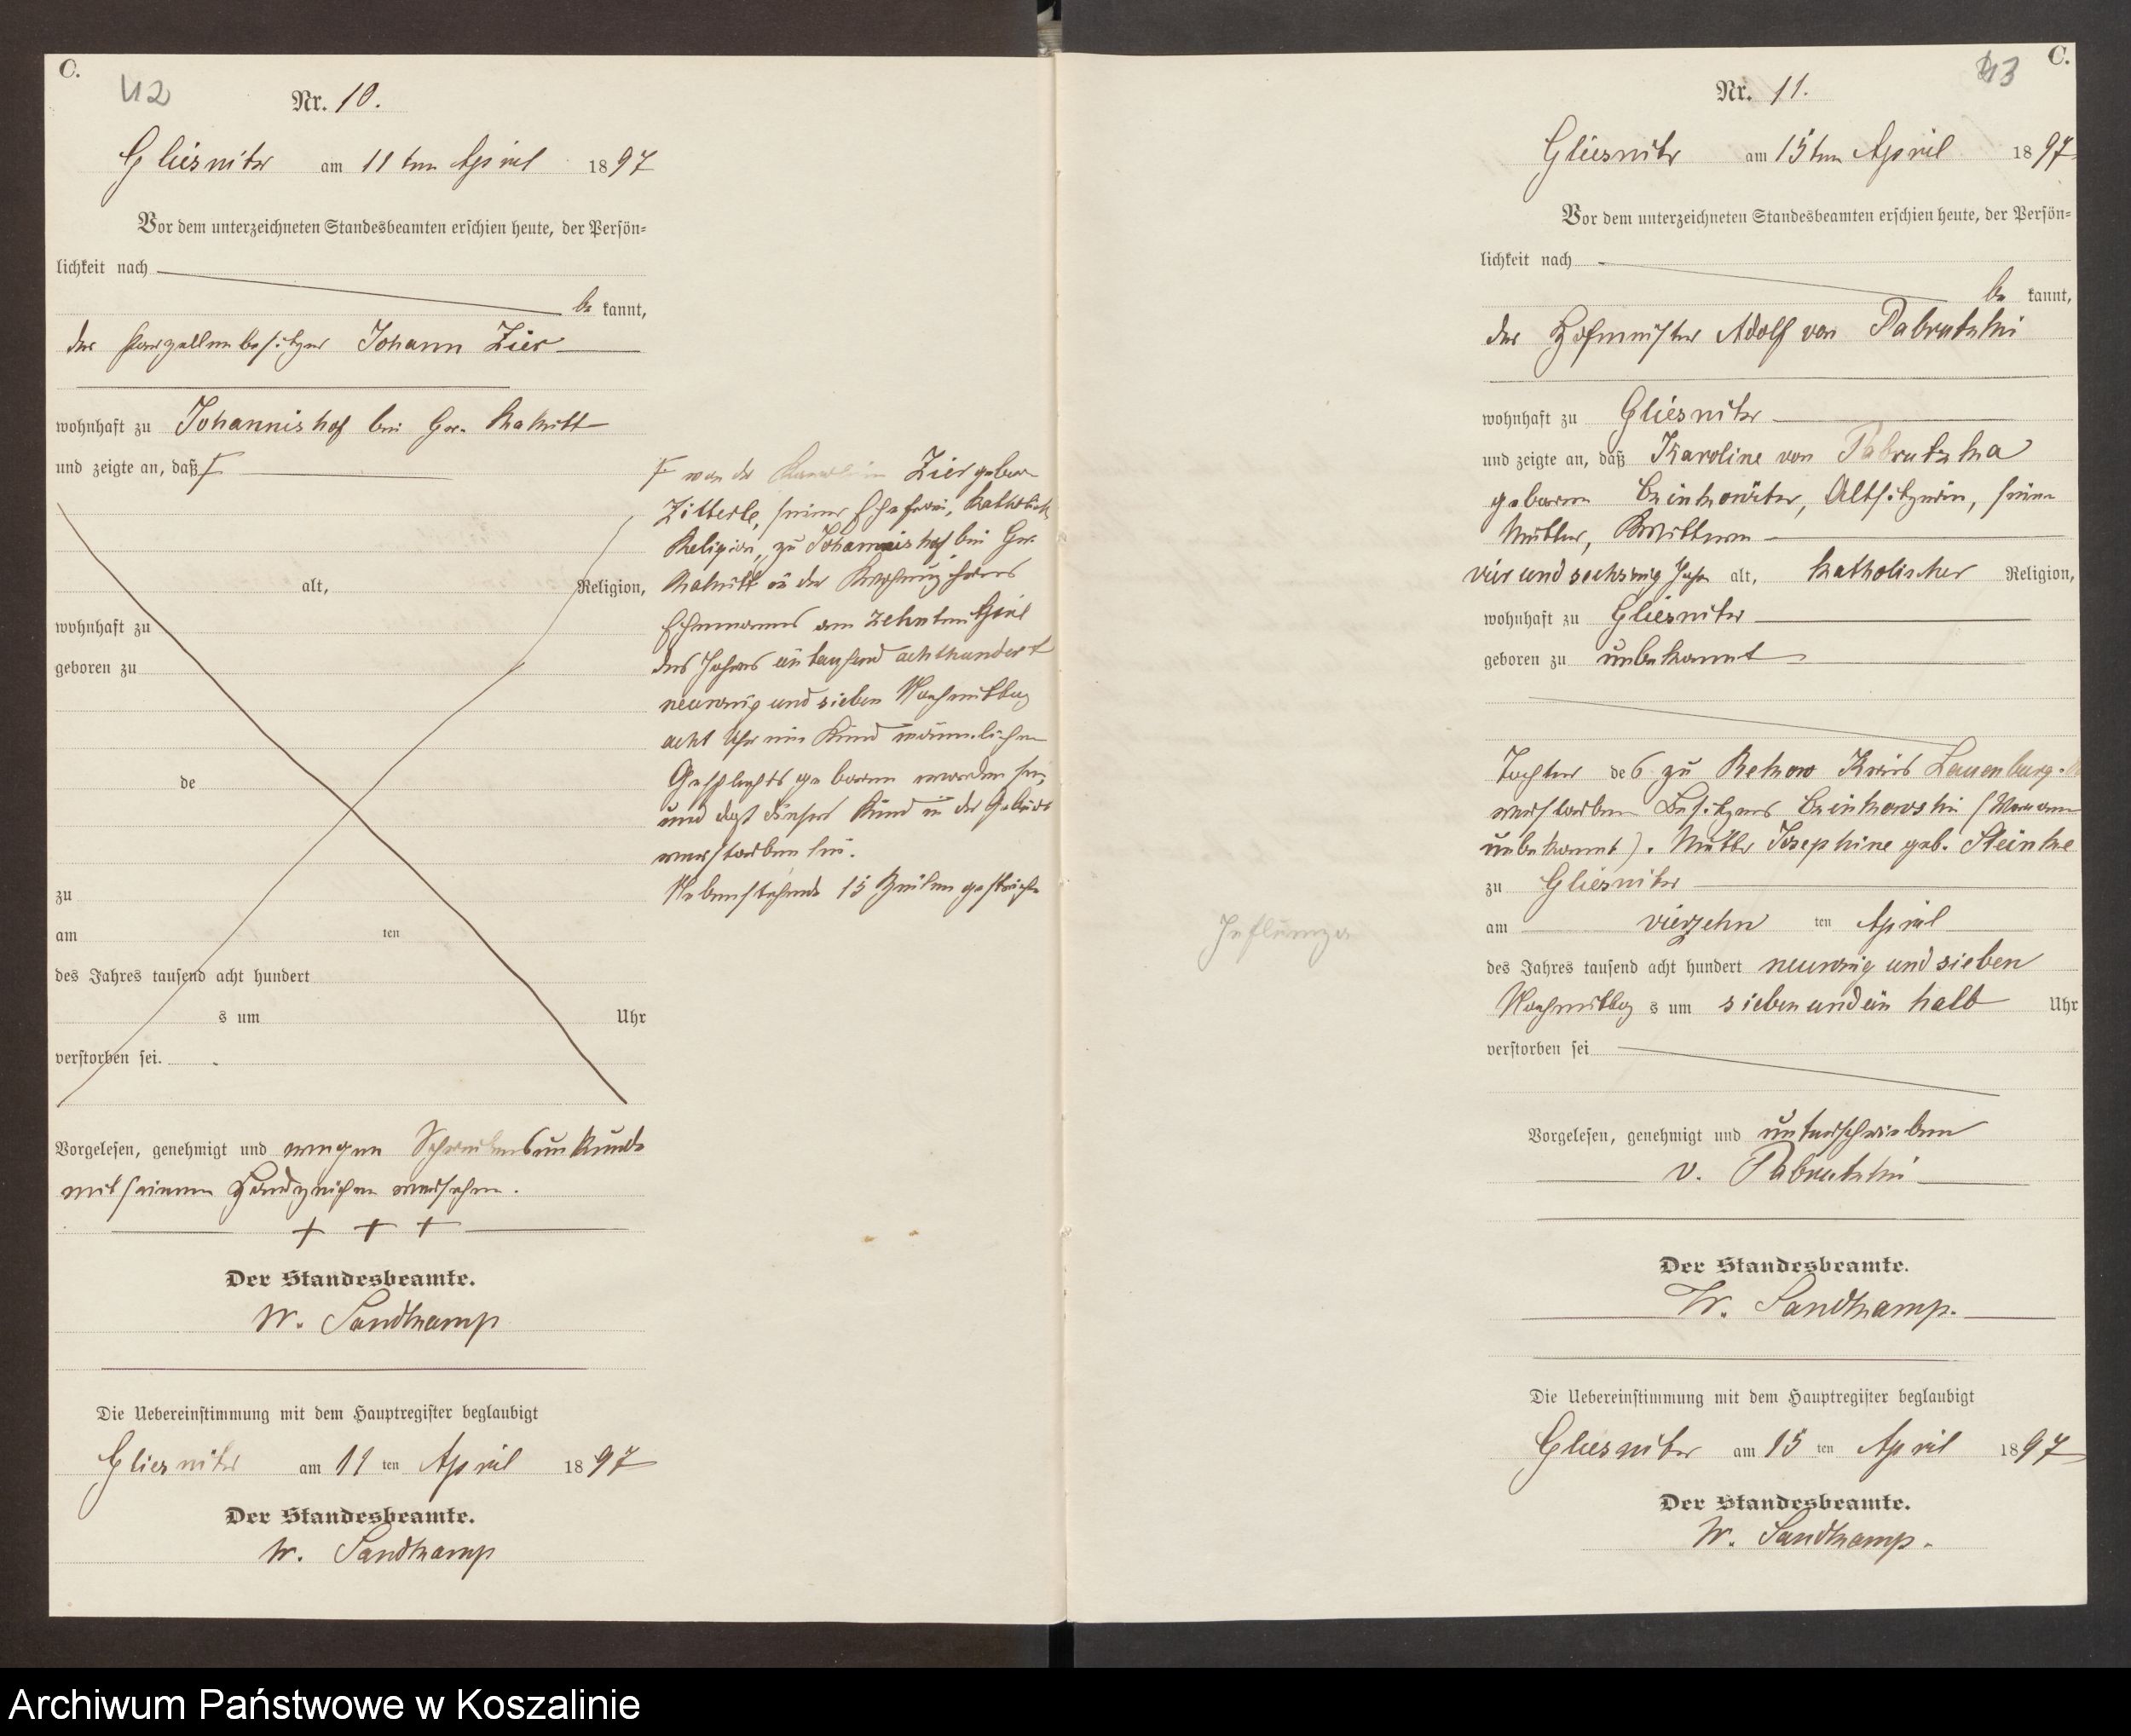 C.
42
Nr. 10.
Gliesnitz am 11ten April 1897
Vor dem unterzeichneten Standesbeamten erschien heute, der Persön-
lichkeit nach
be kannt,
der Parzellenbesitzer Johann Zier
wohnhaft zu Johannishof bei Gr.
und zeigte an, daß
alt, Religion,
wohnhaft zu
geboren zu
de
zu
am ten
des Jahres tausend acht hundert
s um Uhr
verstorben sei.
von der Zier geborne
Zitterle, seiner Ehefrau, katholisch
Religion, zu Johannishof bei Gr.
in der Wohnung ihres
Ehemannes am zehnten April
des Jahres eintausend achthundert
neunzig und sieben Nachmittag
acht Uhr ein Kind männlichen
Geschlechts geboren worden sei,
und daß dieses Kind in der Geburt
verstorben sei.
Nebenstehende 15 Zeilen gestrichen
Vorgelesen, genehmigt und wegen Schreibensunkunde
mit seinem Handzeichen versehen.
+ + +
Der Standesbeamte.
W. Sandkamp
Die Uebereinstimmung mit dem Hauptregister beglaubigt
Gliesnitz am 11 ten April 1897
Der Standesbeamte.
W. Sandkamp
C.
43
Nr. 11.
Gliesnitz am 15ten April 1897
Vor dem unterzeichneten Standesbeamten erschien heute, der Persön-
lichkeit nach
be kannt,
der Hofmeister Adolf von Pabrutzki
wohnhaft zu Gliesnitz
und zeigte an, daß Karoline von Pabrutzka
geborene Altsitzerin, seine
Mutter, Wittwe
vier und sechszig Jahre alt, katholischer Religion,
wohnhaft zu Gliesnitz
geboren zu unbekannt
Tochter des zu Rekow Kreis Lauenburg
verstorbenen Besitzers (Vorname
unbekannt). Mutter Josephine geb. Steinke
zu Gliesnitz
am vierzehn ten April
des Jahres tausend acht hundert neunzig und sieben
Nachmittag s um sieben und ein halb Uhr
verstorben sei
Influenza
Vorgelesen, genehmigt und unterschrieben
v. Pabrutzki
Der Standesbeamte.
W. Sandkamp.
Die Uebereinstimmung mit dem Hauptregister beglaubigt
Gliesnitz am 15 ten April 1897
Der Standesbeamte.
W. Sandkamp.
Archiwum Państwowe w Koszalinie